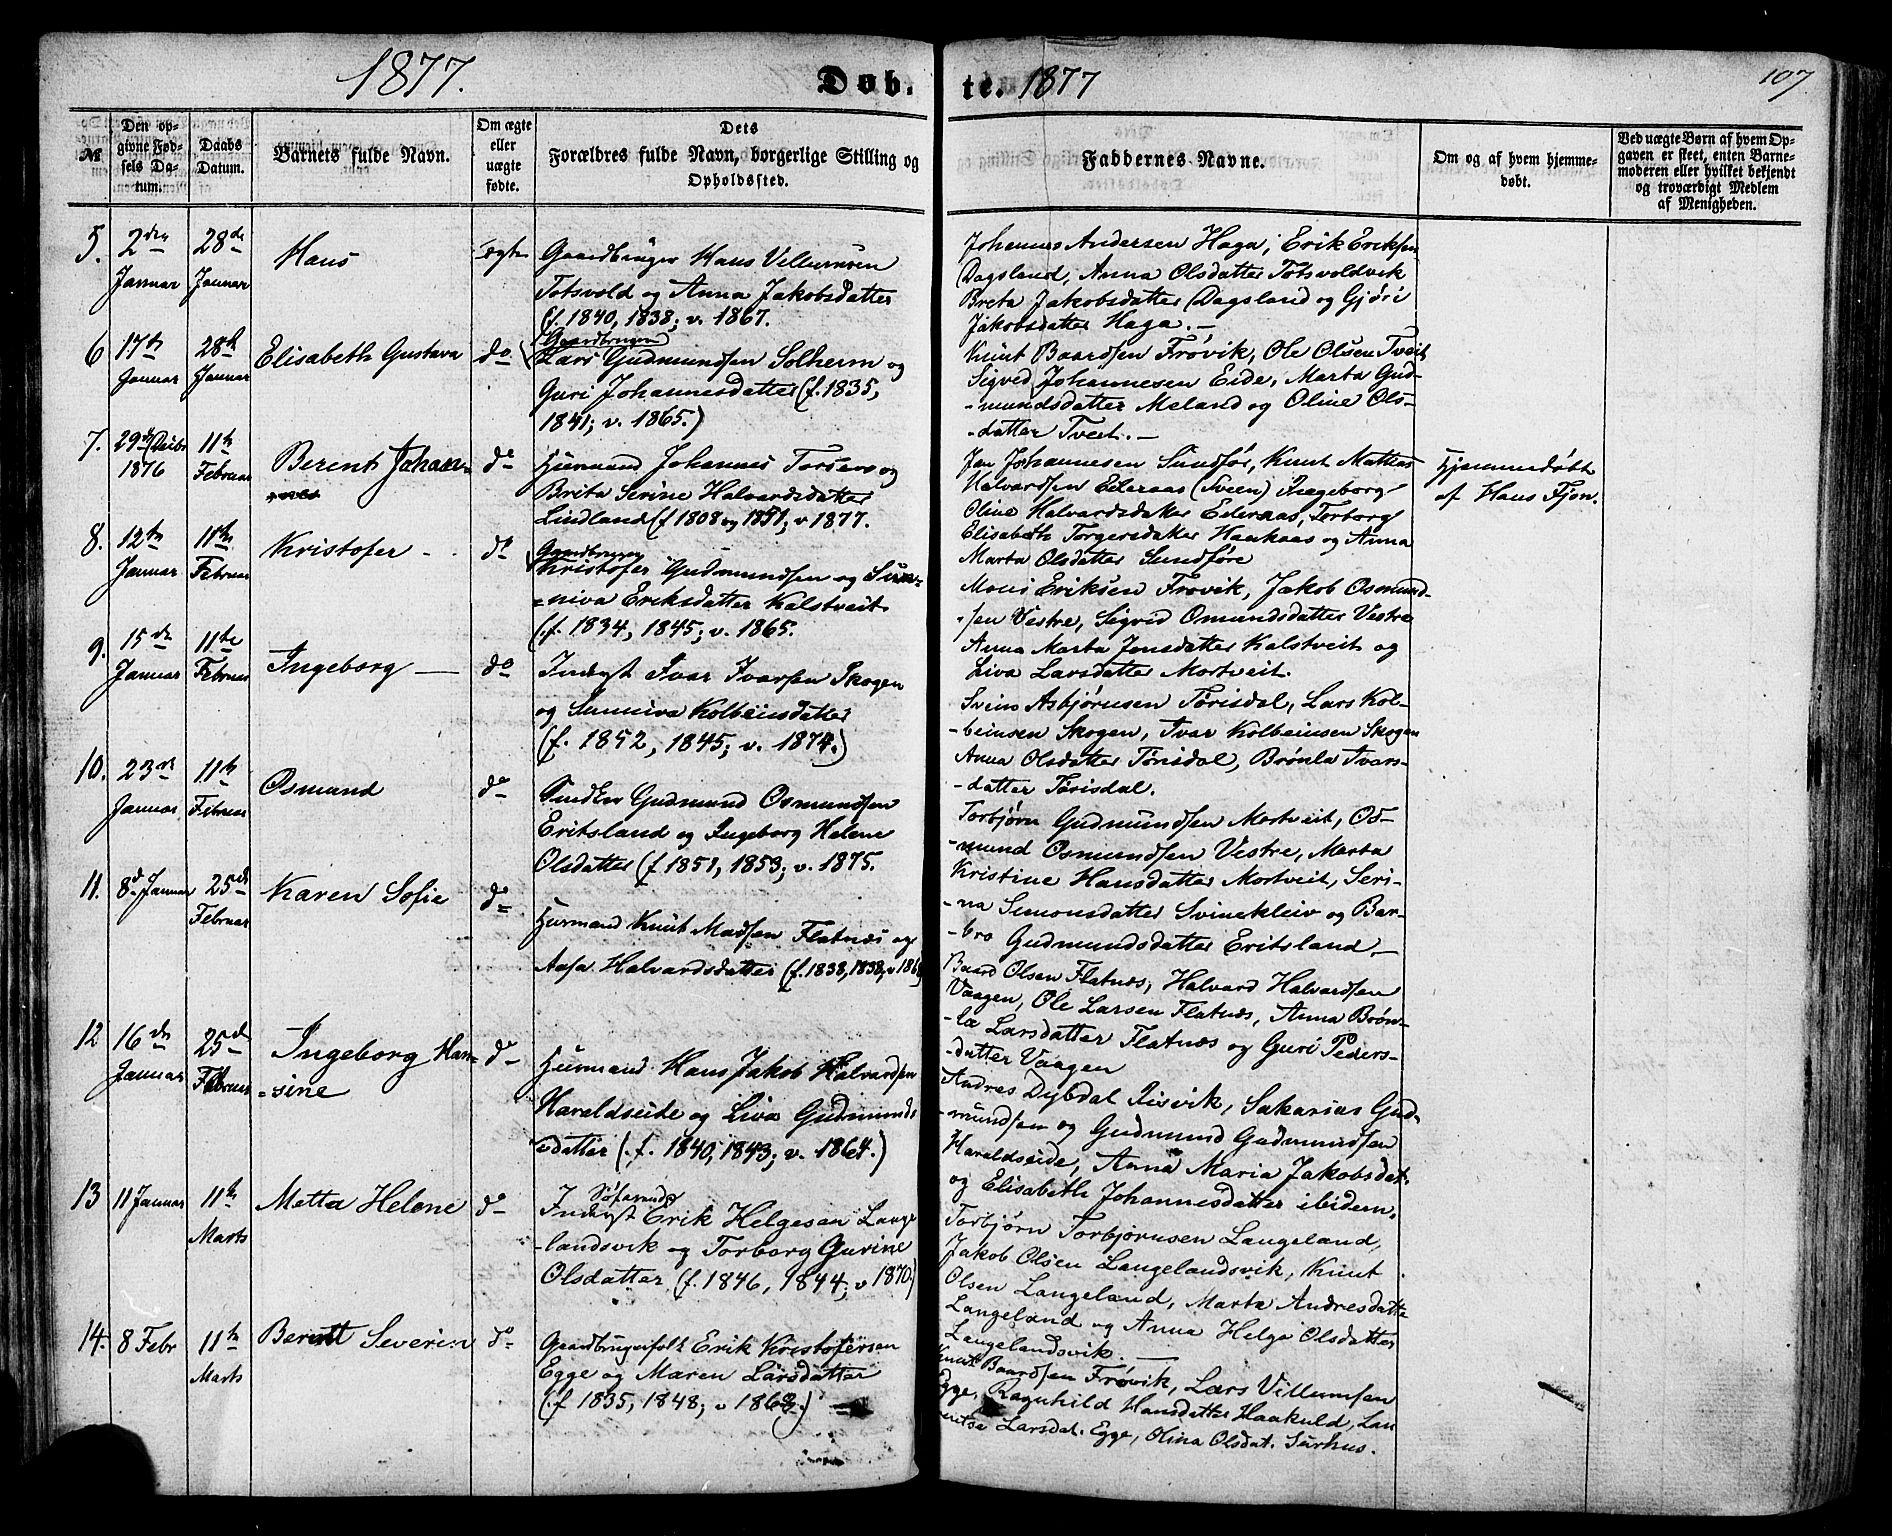 1877.
Døb.
te. 1877
107
№
Den op-
givne Fød-
sels Da-
tum.
Daabs
Datum.
Barnets fulde Navn.
Om ægte
eller
uægte
fødte.
Dets
Forældres fulde Navn, borgerlige Stilling og
Opholdssted.
Faddernes Navne.
Om og af hvem hjemme-
døbt.
Ved uægte Børn af hvem Op-
gaven er skeet, enten Barne-
moderen eller hvilket bekjendt
og troværdigt Medlem
af Menigheden.
5.
2den
Januar
28de
Januar
Hans
ægte
Gaardbruger Hans Villumsen
Totsvold og Anna Jakobsdatter
(f. 1840, 1838; v. 1867.
Johannes Andersen Haga, Erik Eriksen
Dagsland, Anna Olsdatter Totsvoldvik
Breta Jakobsdatter Dagsland og Gjøri
Jakobsdatter Haga.—
6
17de
Januar
28de
Januar
Elisabeth Gustava
do
Gaardbruger
Lars Gudmundsen Solheim og
Guri Johannesdatter (f. 1835,
1841; v. 1865.)
Knut Baardsen Frøvik, Ole Olsen Tveit
Sigved Johannesen Eide, Marta Gud-
-mundsdatter Meland og Oline Ols-
-datter Tveit.—
7.
29de Decbr
1876
11te
Februar
Berent Johan-
do
Huusmand Johannes Torsen og
Brita Serine Halvardsdatter
Lindland (f 1808 og 1851; v 1877.
Jan Johannesen Sundfør, Knut Mathias
Halvardsen Ederaas (Sveen) Ingeborg
Oline Halvardsdatter Ederaas, Torborg
Elisabeth Torgersdatter Haakaas og Anna
Marta Olsdatter Sundføre
Hjemmedøbt
af Hans Fjon.
8.
12te
Januar
11te
Februar
Kristofer
do
Gaardbruger
Kristofer Gudmundsen og Sun-
=niva Eriksdatter Kalstveit
(f. 1834, 1845; v. 1865.
Mons Eriksen Frøvik, Jakob Osmund-
-sen Vestre, Sigvid Osmundsdatter Vestre
Anna Marta Jonsdatter Kalstveit og
Liva Larsdatter Mortveit.
9.
15de
Januar
11te
Februar
Ingeborg
do
Inderst Ivar Ivarsen Skogen
og Sunniva Kolbeinsdatter
(f. 1852, 1845; v. 1874.)
Svein Asbjørnsen Tørisdal, Lars Kol-
-beinsen Skogen, Ivar Kolbeinsen Skogen
Anna Olsdatter Tørisdal, Brønla Ivars-
-datter Tørisdal.
10.
23de
Januar
11te
Februar
Osmund
do
Snedker Gudmund Osmundsen
Eritsland og Ingeborg Helene
Olsdatter (f 1851, 1853; v. 1875.
Torbjørn Gudmundsen Mortveit, Os-
-mund Osmundsen Vestre, Marta
Kristine Hansdatter Mortveit, Seri-
-na Simonsdatter Svinekleiv og Bar-
-bro Gudmundsdatter Eritsland.—
11.
8de Januar
25de
Februar
Karen Sofie
do
Huusmand Knut Madsen Flatnæs og
Aasa Halvardsdatter (f. 1838, 1838, v 186
Baard Olsen Flatnæs, Halvard Halvardsen
Vaagen, Ole Larsen Flatnæs, Anna Brøn-
-la Larsdatter Flatnæs og Guri Peders-
-datter Vaagen
12
16de
Januar
25de
Februar
Ingeborg Han-
=sine
do
Huusmand Hans Jakob Halvardsen
Haraldseide og Liva Gudmunds
=datter (f. 1840, 1843; v. 1864.)
Andres Dybdal Risvik, Sakarias Gud-
-mundsen og Gudmund Gudmundsen
Haraldseide, Anna Maria Jakobsdat.
og Elisabeth Johannesdatter ibidem.
13
11 Januar
11te
Marts
Metta Helene
do
Sømand
Inderst Erik Helgesen Lange
-landsvik og Torborg Gurine
Olsdatter (f. 1846, 1844; v 1870.)
Torbjørn Torbjørnsen Langeland,
Jakob Olsen Langelandsvik, Knut
Olsen Langeland, Marta Andresdatte
Langeland og Anna Helga Olsdatter
Langelandsvik.—
14.
8 Febr
11te
Marts
Berntt Severin
do
Gaardbrugerfolk Erik Kristofersen
Egge og Maren Larsdatter
(f 1835, 1848; v 1868.)
Knut Baardsen Frøvik, Lars Villumsen
Egge, Ragnhild Hansdatter Haakuld, Lau
rentse Larsdat. Egge, Olina Olsdat. Sørhus.